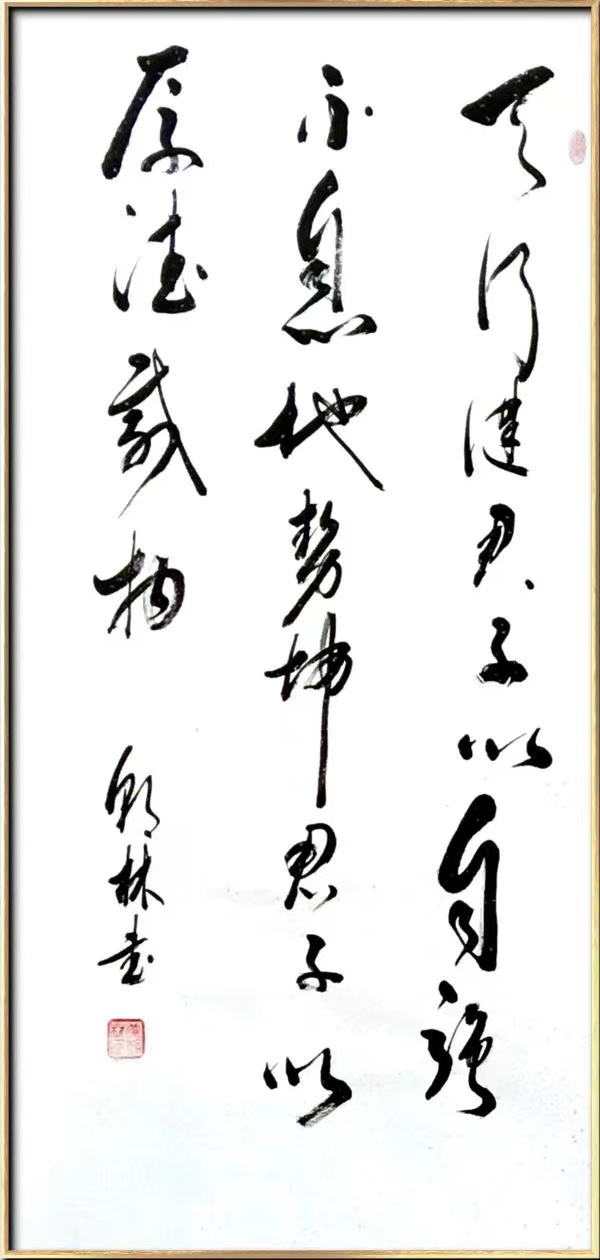 天行健君子以自强
不息地势坤君子以
厚德载物
林书